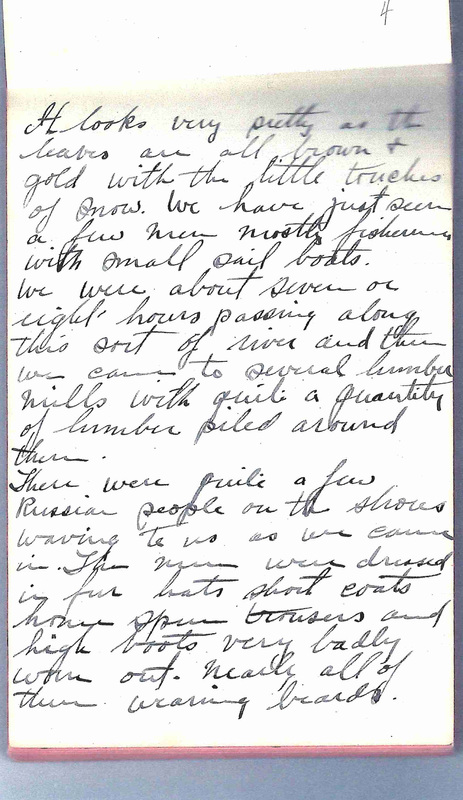 4
It looks very pretty as the
leaves are all brown &
gold with the little touches
of snow. We have just seen
a few men mostly fishermen
with small sail boats.
We were about seven or
eight hours passing along
this sort of river and then
we came to several lumber
mills with quite a quantity
of lumber piled around
them.
There were quite a few
Russian people on the shores
waving to us as we came
in. The men were dressed
in fur hats short coats
home spun trousers and
high boots very badly
worn out. Nearly all of
them wearing beards.